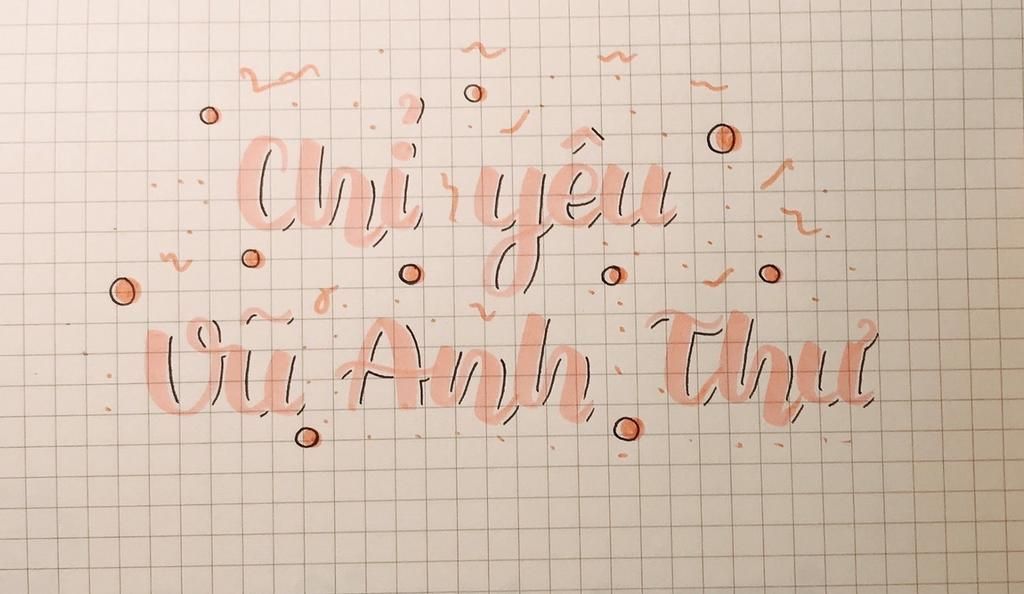 Chỉ yêu
Vũ Anh Thư